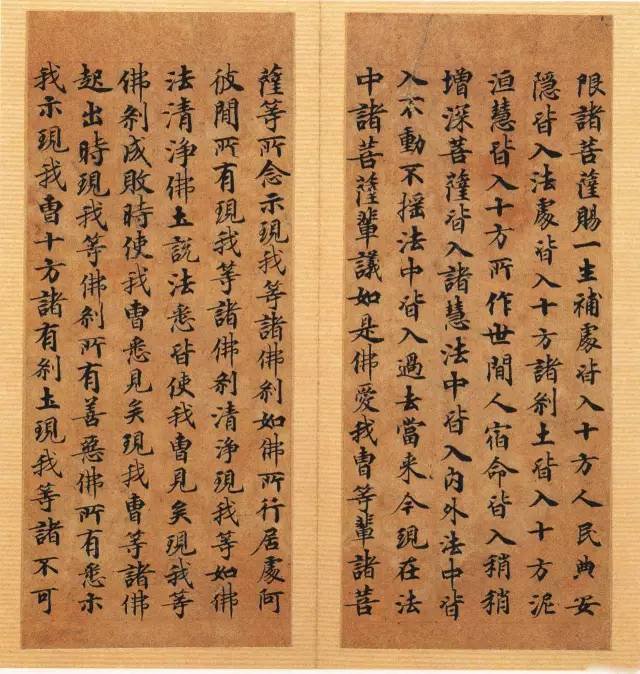 限諸菩薩賜一生補處皆入十方人民典安
隱皆入法處皆入十方諸刹土皆入十方泥
洹慧皆入十方所作世間人宿命皆入稍稍
增深菩薩皆入諸慧法中皆入內外法中皆
入不動不搖法中皆入過去當来今現在法
中諸菩薩輩議如是佛愛我曹等輩諸菩
薩等所念示現我等諸佛刹如佛所行居處阿
彼間所有現我等諸佛刹清淨現我等如佛
法清淨佛土説法悉皆使我曹見矣現我等
佛刹成敗時使我曹悉見矣現我曹等諸佛
起出時現我等佛刹所有善惡佛所有悉示
我示現我曹十方諸有刹土現我等諸不可